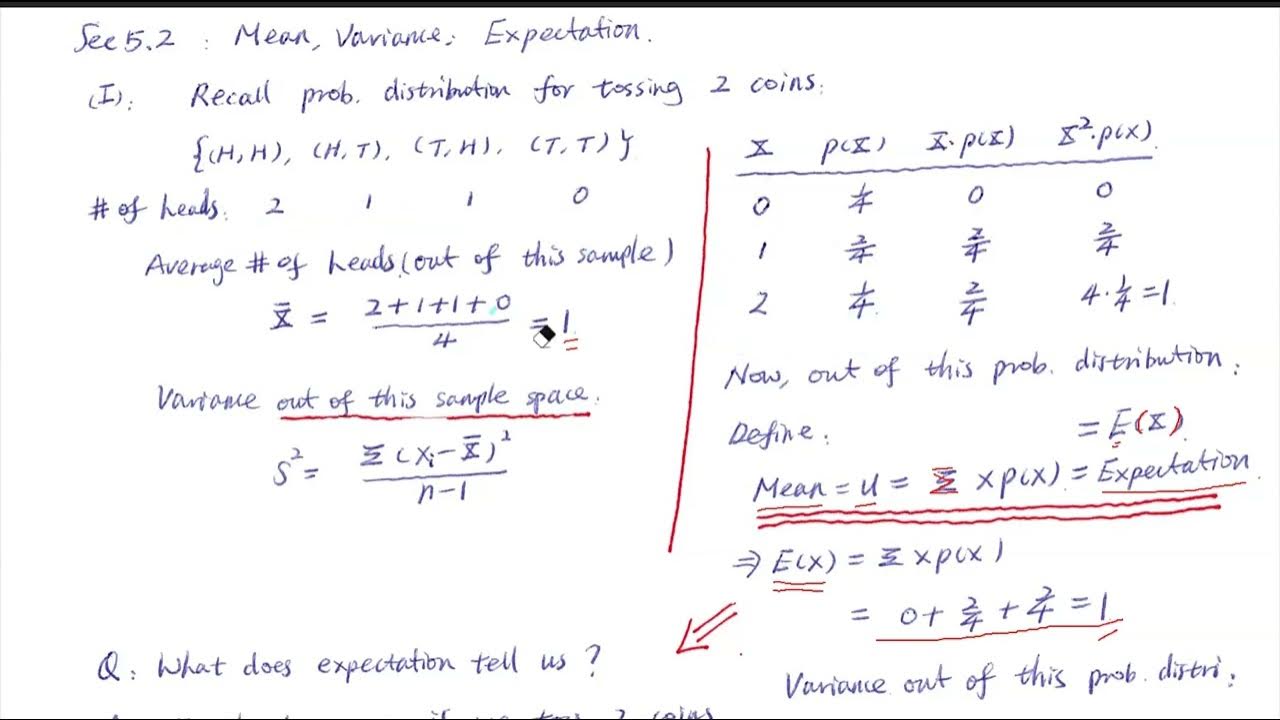 Sec 5.2 : Mean, Variance, Expectation.
(I): Recall prob. distribution for tossing 2 coins:
{(H,H), (H,T), (T,H), (T,T)}
# of heads: 2 1 1 0
Average # of heads (out of this sample)
X̄ = (2+1+1+0)/4 = 1
Variance out of this sample space.
S² = Σ(Xᵢ-X̄)²/(n-1)
Q: What does expectation tell us?
2 coins
X P(X) X·P(X) X²·P(X)
0 1/4 0 0
1 2/4 2/4 2/4
2 1/4 2/4 4·1/4=1
Now, out of this prob. distribution:
Define: = E(X)
Mean = u = Σ XP(X) = Expectation
⇒ E(X) = Σ XP(X)
= 0+2/4+2/4=1
Variance out of this prob. distri: